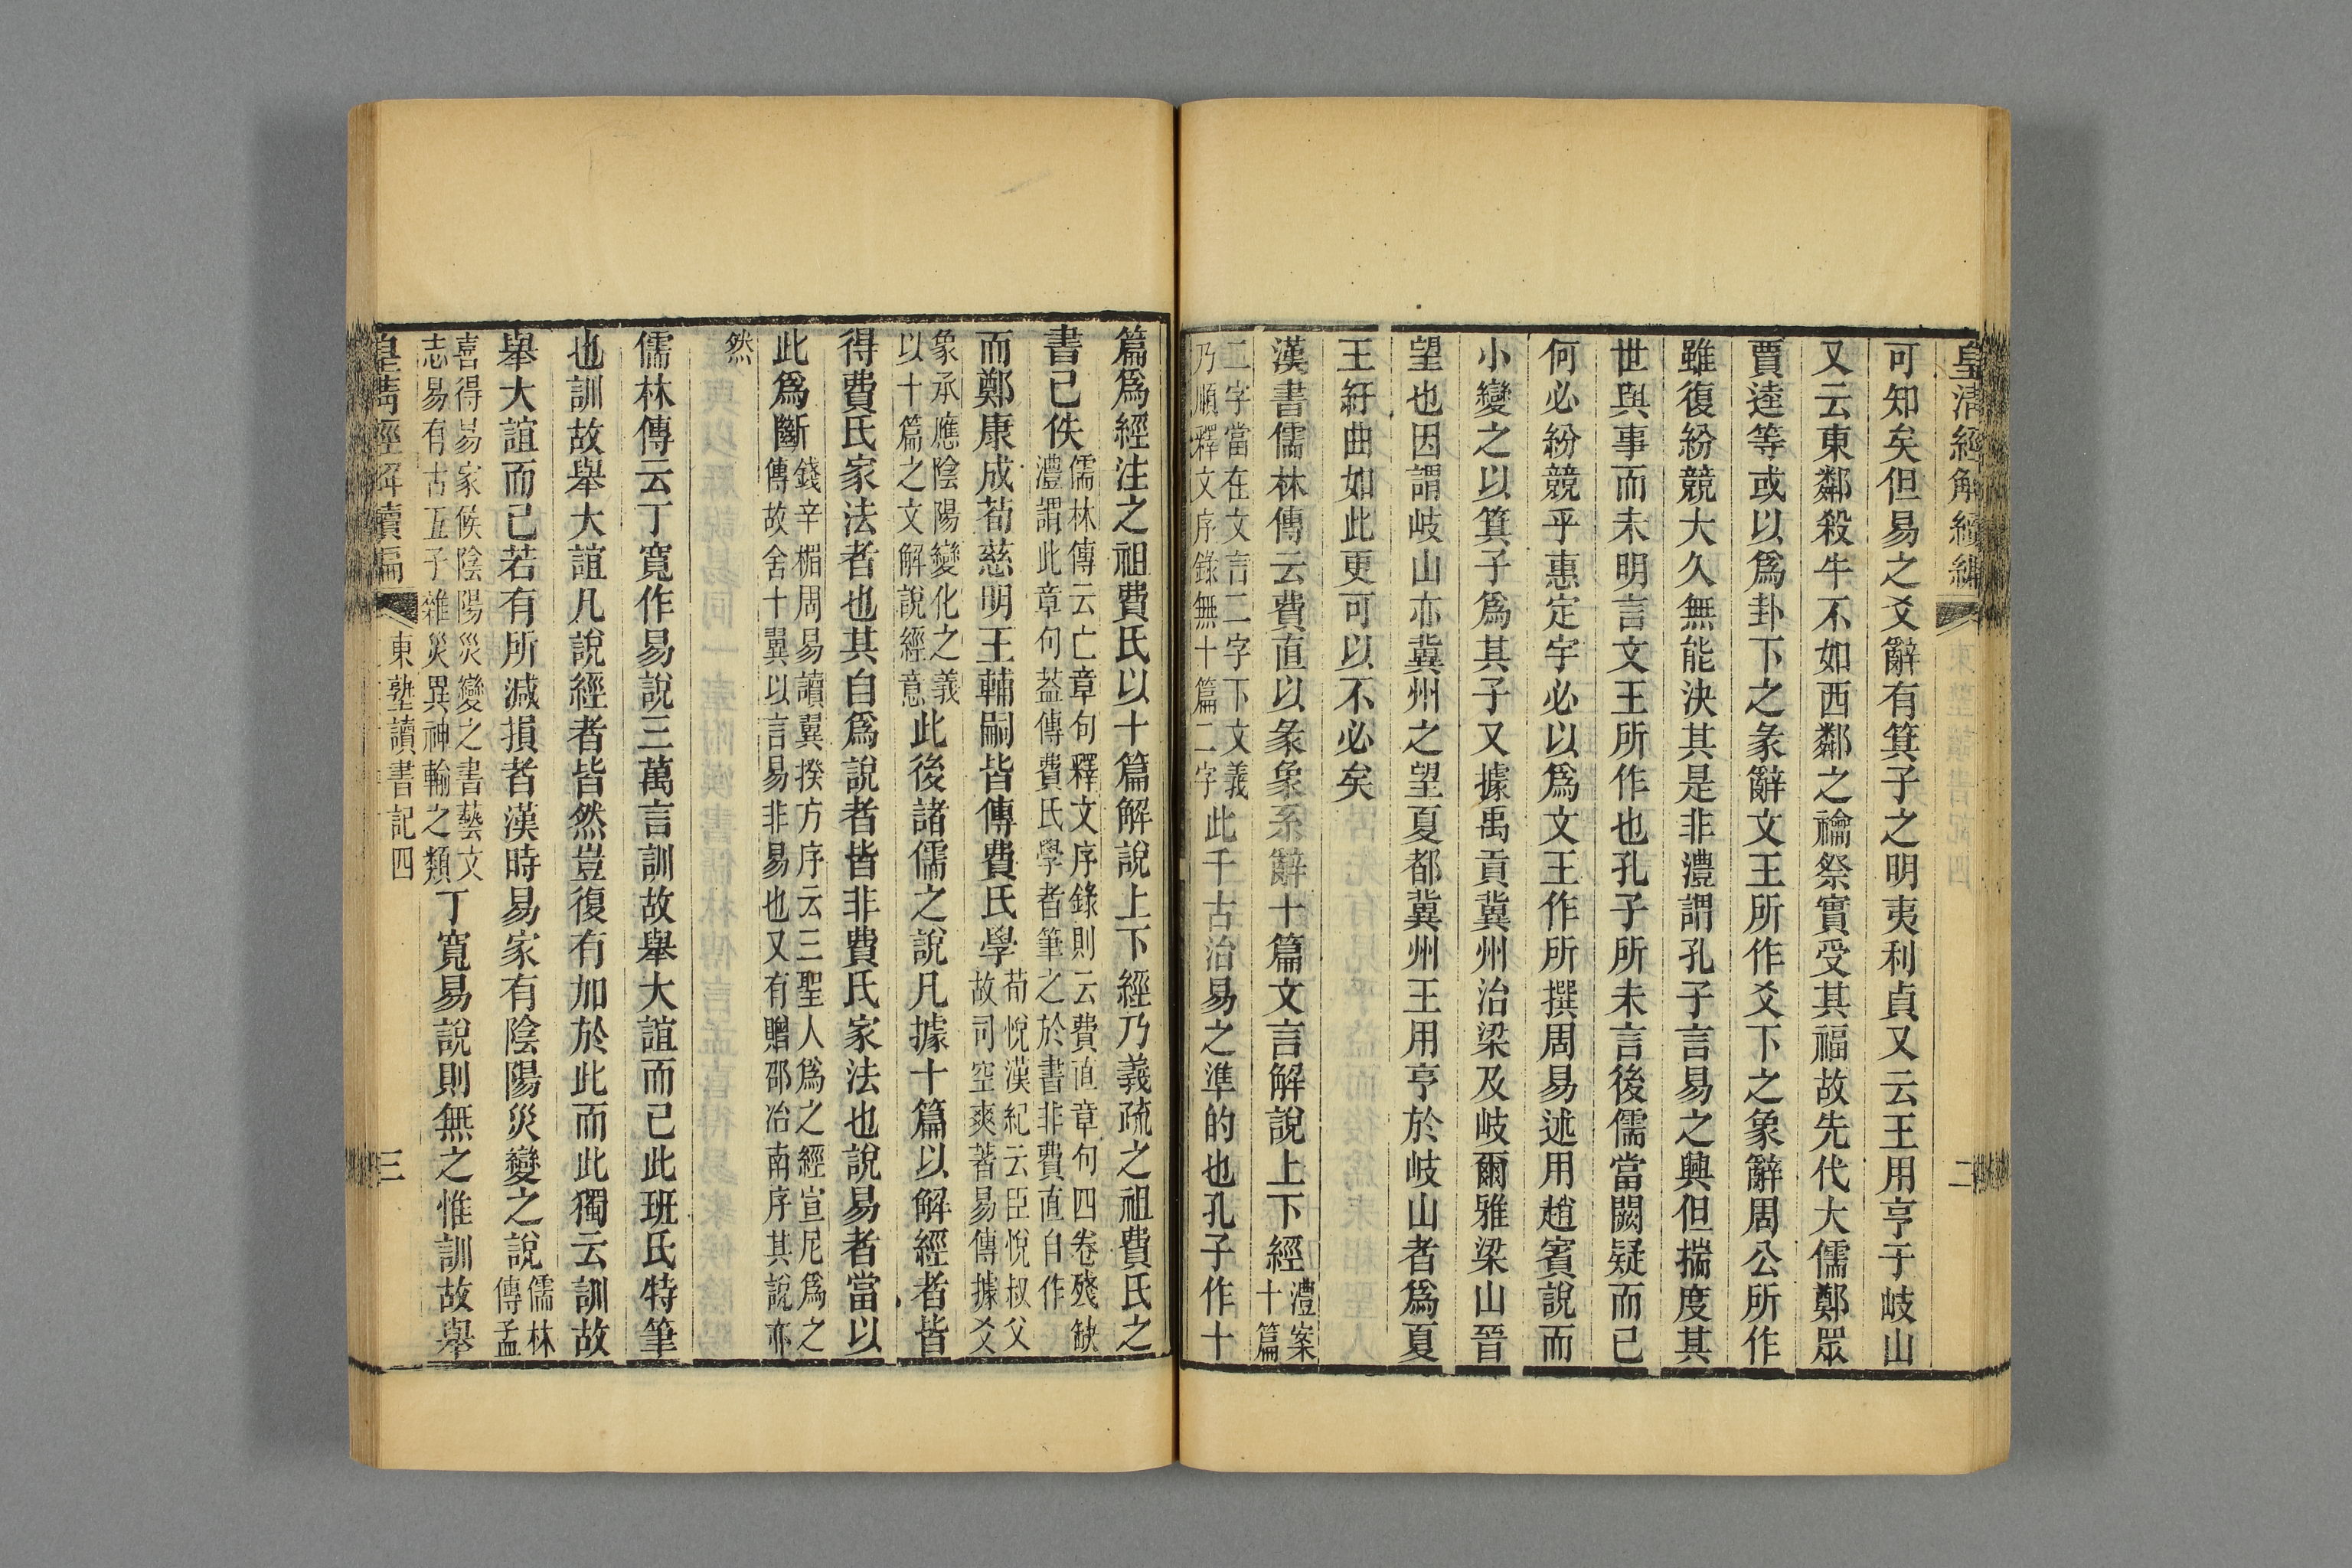 皇清經解續編
二
可知矣但易之爻辭有箕子之明夷利貞又云王用亨于岐山
又云東鄰殺牛不如西鄰之禴祭實受其福故先代大儒鄭眾
賈逵等或以為卦下之彖辭文王所作爻下之象辭周公所作
雖復紛競大久無能決其是非澧謂孔子言易之興但揣度其
世與事而未明言文王所作也孔子所未言後儒當闕疑而已
何必紛競乎惠定宇必以為文王作所撰周易述用趙賓說而
小變之以箕子為其子又據禹貢冀州治梁及岐爾雅梁山晉
望也因謂岐山亦冀州之望夏都冀州王用亨於岐山者為夏
王紆曲如此更可以不必矣
漢書儒林傳云費直以彖象系辭十篇文言解說上下經澧案十篇
二字當在文言二字下文義乃順釋文序錄無十篇二字此千古治易之準的也孔子作十
篇為經注之祖費氏以十篇解說上下經乃義疏之祖費氏之
書已佚儒林傳云亡章句釋文序錄則云費直章句四卷殘缺澧謂此章句葢傳費氏學者筆之於書非費直自作
而鄭康成荀慈明王輔嗣皆傳費氏學荀悅漢紀云臣悅叔父故司空爽著易傳據爻
象承應陰陽變化之義以十篇之文解說經意此後諸儒之說凡據十篇以解經者皆
得費氏家法者也其自為說者皆非費氏家法也說易者當以
此為斷錢辛楣周易讀翼揆方序云三聖人為之經宣尼為之傳故舍十翼以言易非易也又有贈邵冶南序其說亦
然
儒林傳云丁寬作易說三萬言訓故舉大誼而已此班氏特筆
也訓故舉大誼凡說經者皆然豈復有加於此而此獨云訓故
舉大誼而已若有所減損者漢時易家有陰陽災變之說儒林傳孟
喜得易家候陰陽災變之書藝文志易有古五子雜災異神輸之類丁寬易說則無之惟訓故舉
皇清經解續編
東塾讀書記四
三